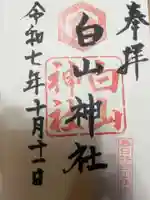 奉拝
白山神社
白山
神社
令和七年十月十二日